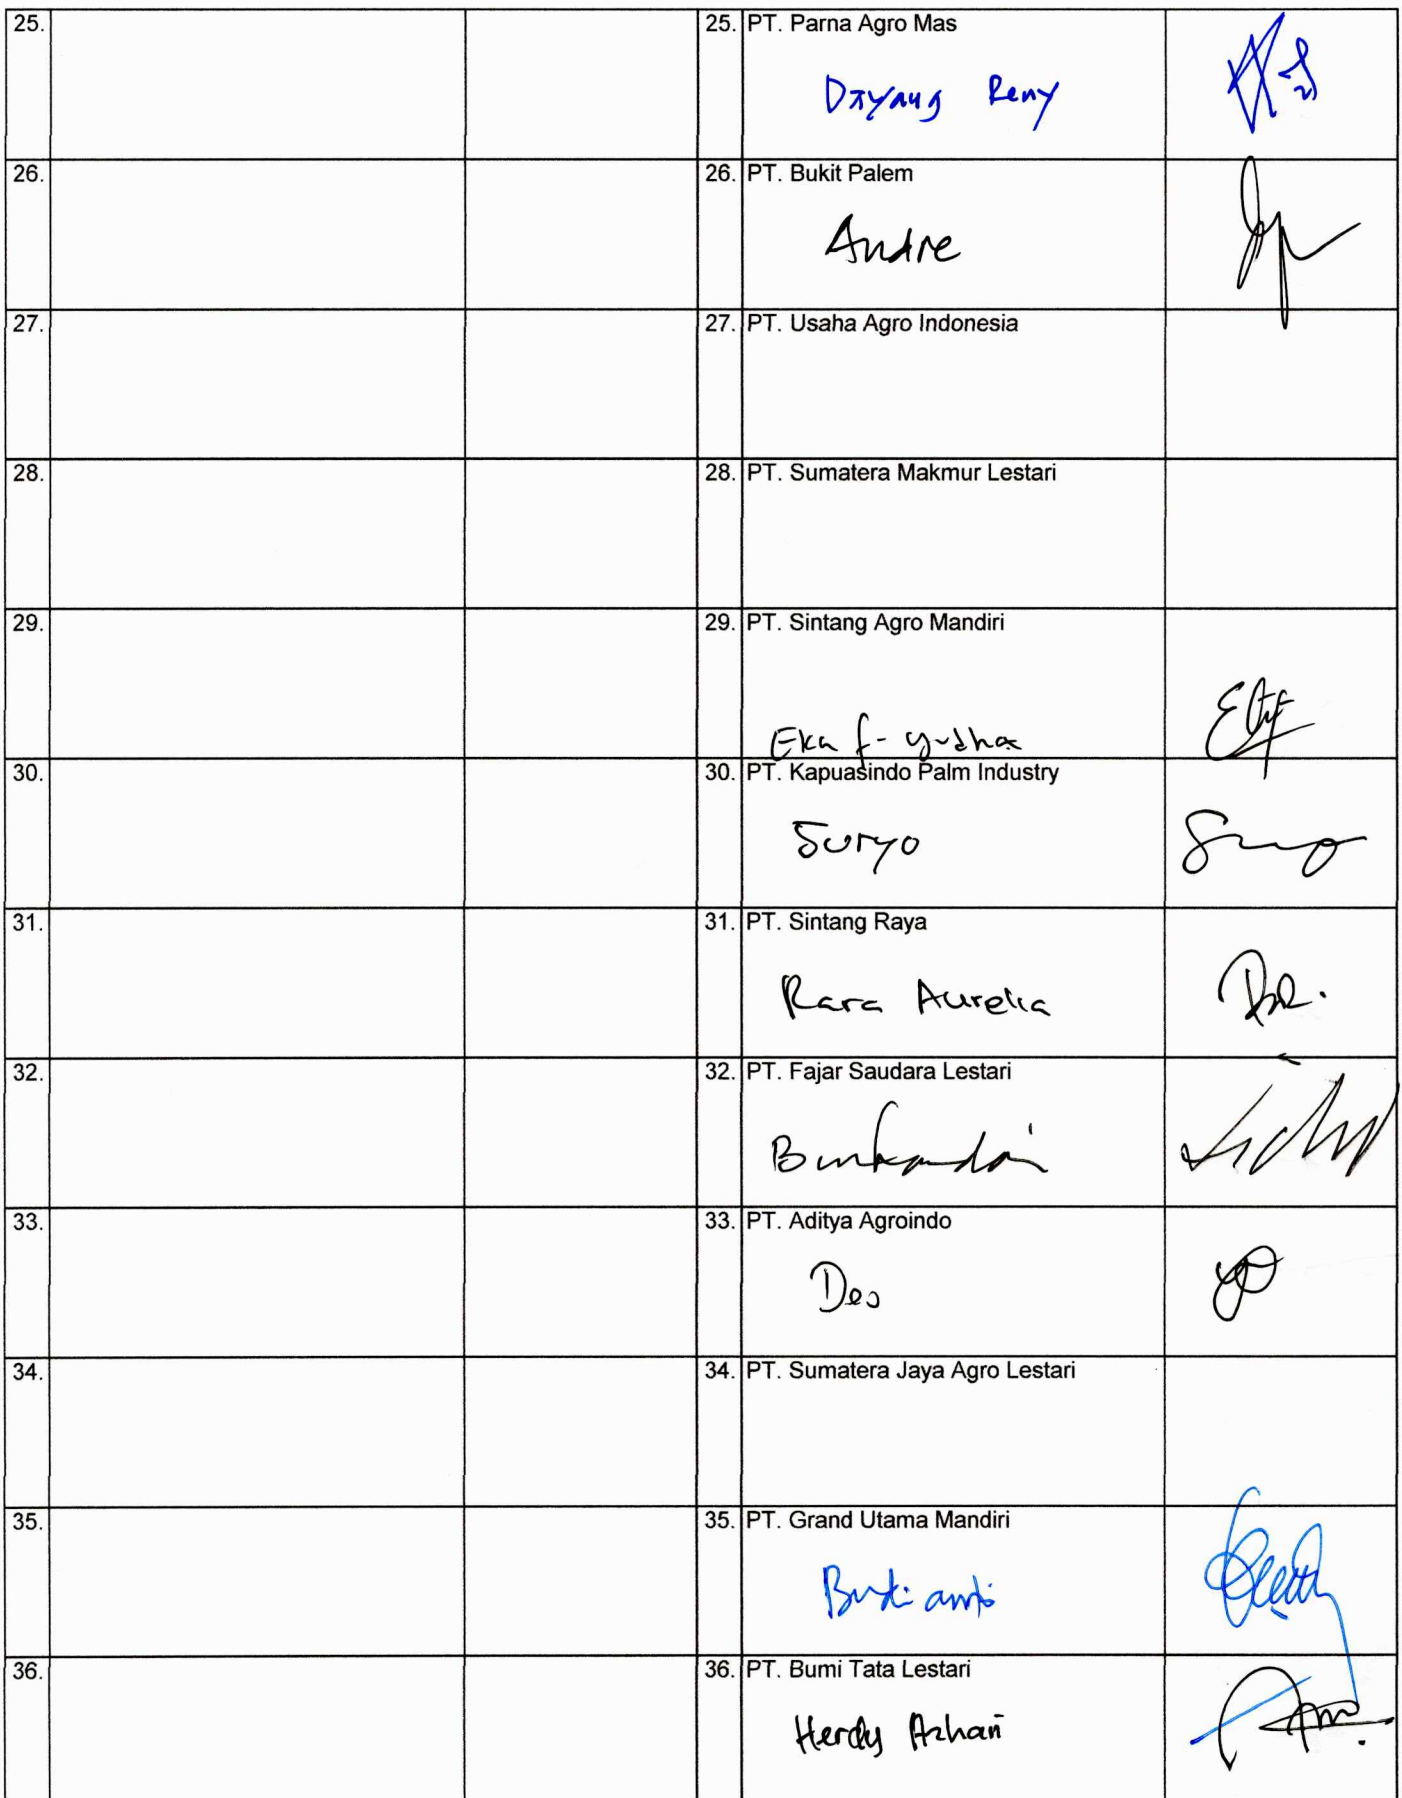 25. 25. PT. Parna Agro Mas
Dayang Reny
26. 26. PT. Bukit Palem
Andre
27. 27. PT. Usaha Agro Indonesia
28. 28. PT. Sumatera Makmur Lestari
29. 29. PT. Sintang Agro Mandiri
Eka f- yudha
30. 30. PT. Kapuasindo Palm Industry
Suryo
31. 31. PT. Sintang Raya
Rara Aurelia
32. 32. PT. Fajar Saudara Lestari
33. 33. PT. Aditya Agroindo
Deo
34. 34. PT. Sumatera Jaya Agro Lestari
35. 35. PT. Grand Utama Mandiri
36. 36. PT. Bumi Tata Lestari
Herdy Azhari